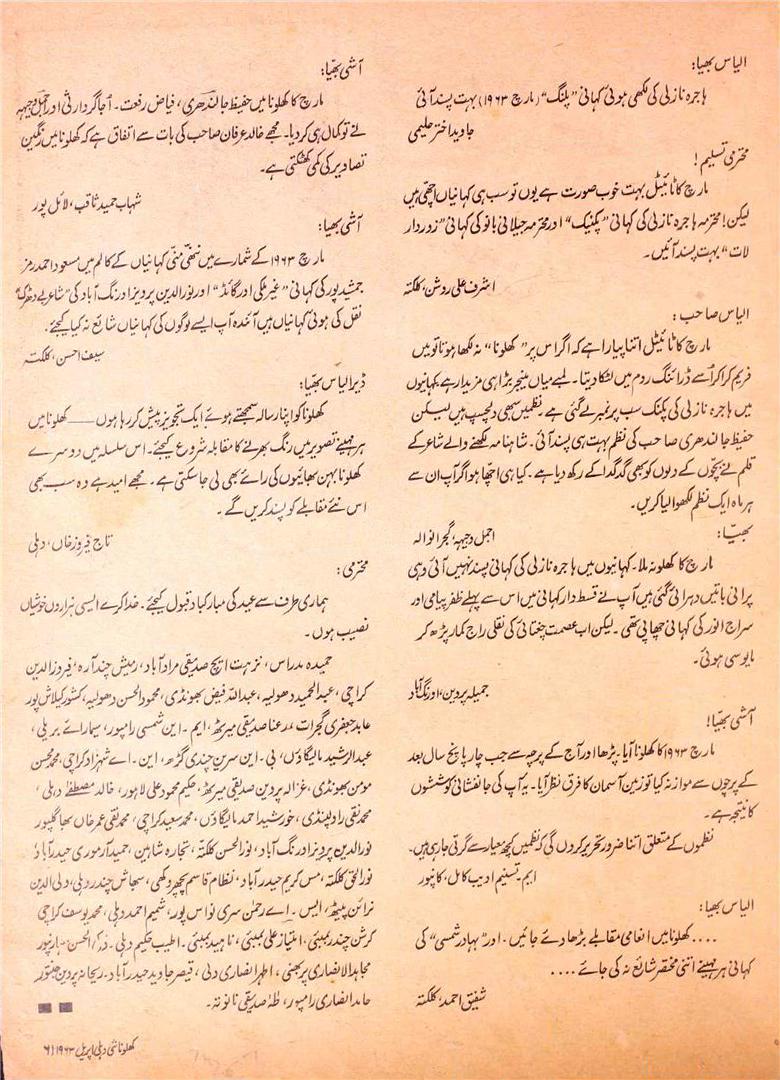 الیاس بھیا:
ہاجرہ نازلی کی لکھی ہوئی کہانی ”پلنگ“ (مارچ ۱۹۶۳) بہت پسند آئی
جاوید اختر حلیمی
محترمی تسلیم!
مارچ کا ٹائیٹل بہت خوب صورت ہے یوں تو سب ہی کہانیاں اچھی ہیں
لیکن! محترمہ ہاجرہ نازلی کی کہانی ”پکنیک“ اور محترمہ جیلانی بانو کی کہانی ”زوردار
لات“ بہت پسند آئیں۔
اشرف علی روشن، کلکتہ
الیاس صاحب:
مارچ کا ٹائیٹل اتنا پیارا ہے کہ اگر اس پر ”کھلونا“ نہ لکھا ہوتا تو میں
فریم کرا کر اُسے ڈرائنگ روم میں لٹکا دیتا۔ لمبے میاں منیجر بڑا ہی مزیدار ہے۔ کہانیوں
میں ہاجرہ نازلی کی پکنک سب پر نمبر لے گئی ہے۔ نظمیں سبھی دلچسپ ہیں لیکن
حفیظ جالندھری صاحب کی نظم بہت ہی پسند آئی۔ شاہنامہ لکھنے والے شاعر کے
قلم نے بچّوں کے دلوں کو بھی گدگدا کے رکھ دیا ہے۔ کیا ہی اچھا ہو اگر آپ ان سے
ہر ماہ ایک نظم لکھوا لیا کریں۔
اجمل وجیہہ، گجرانوالہ
بھیّا:
مارچ کا کھلونہ ملا۔ کہانیوں میں ہاجرہ نازلی کی کہانی پسند نہیں آئی وہی
پرانی باتیں دہرائی گئی ہیں آپ نے قسط دار کہانی میں اس سے پہلے ظفر پیامی اور
سراج انور کی کہانی چھاپی تھی۔ لیکن اب عصمت چغتائی کی نقلی راج کمار پڑھ کر
مایوسی ہوئی۔
جمیلہ پروین، اورنگ آباد
آشی بھیّا!
مارچ ۱۹۶۳ کا کھلونا آیا۔ پڑھا اور آج کے پرچہ سے جب چار پانچ سال بعد
کے پرچوں سے موازنہ کیا تو زمین آسمان کا فرق نظر آیا۔ یہ آپ کی جانفشانی کوششوں
کا نتیجہ ہے۔
نظموں کے متعلق اتنا ضرور تحریر کروں گی کہ نظمیں کچھ معیار سے گرتی جا رہی ہیں۔
ایم۔ تسنیم ادیب کامل، کانپور
الیاس بھیا:
.... کھلونا میں انعامی مقابلے بڑھا دئے جائیں۔ اور ”بہادر شمسی“ کی
کہانی ہر مہینے اتنی مختصر شائع نہ کی جائے ....
شفیق احمد، کلکتہ
آشی بھیّا:
مارچ کا کھلونا میں حفیظ جالندھری، فیاض رفعت۔ آجاگر دارثی اور اجمل وجیہہ
نے تو کمال ہی کر دیا۔ مجھے خالد عرفان صاحب کی بات سے اتفاق ہے کہ کھلونا میں رنگین
تصاویر کی کمی کھٹکتی ہے۔
شہاب حمید ثاقب، لائل پور
آشی بھیا:
مارچ ۱۹۶۳ کے شمارے میں ننھی منی کہانیاں کے کالم میں مسعود احمد رمز
جمشید پور کی کہانی ”غیر ملکی اور گائڈ“ اور نور الدین پرویز اورنگ آباد کی ”شاعر بے دھڑک“
نقل کی ہوئی کہانیاں ہیں آئندہ آپ ایسے لوگوں کی کہانیاں شائع نہ کیا کیجئے۔
سیف احسن، کلکتہ
ڈیر الیاس بھیّا:
کھلونا کو اپنا رسالہ سمجھتے ہوئے ایک تجویز پیش کر رہا ہوں —— کھلونا میں
ہر مہینے تصویر میں رنگ بھرنے کا مقابلہ شروع کیجئے۔ اس سلسلہ میں دوسرے
کھلونا بہن بھائیوں کی رائے بھی لی جا سکتی ہے۔ مجھے امید ہے وہ سب بھی
اس نئے مقابلے کو پسند کریں گے۔
تاج فیروز خاں، دہلی
محترمی:
ہماری طرف سے عید کی مبارکباد قبول کیجئے۔ خدا کرے ایسی ہزاروں خوشیاں
نصیب ہوں۔
حمیدہ مدراس، نزہت ایچ صدیقی مراد آباد، رمیش چندر آرہ، فیروز الدین
کراچی، عبد الحمید دھولیہ، عبداللہ فیض بھونڈی، محمود الحسن دھولیہ، کشور کیلاش پور
عابد جعفری گجرات، رعنا صدیقی میرٹھ، ایم۔ این شمسی رامپور، سیما رائے بریلی،
عبدالرشید مالیگاؤں، بی۔ این سرین چندی گڑھ، این۔ اے شہزاد کراچی، محمد محسن
مومن بھونڈی، غزالہ پروین صدیقی میرٹھ، حکیم محمود علی لاہور، خالد مصطفٰے دہلی،
محمد نقی راولپنڈی، خورشید احمد مالیگاؤں، محمد سعید کراچی، محمد نقی عمر خاں بھاگلپور
نور الدین پرویز اورنگ آباد، نور الحسن کلکتہ، نجارہ شاہین، حمید آرموری حیدر آباد
نور الحق کلکتہ، مس کریم حیدر آباد، نظام قاسم چھپرہ مکھی، سبھاش چندر دہلی، ولی الدین
نرائن پیٹھ، ایس۔ اے رحمٰن سری نواس پور، شمیم احمد دہلی، محمد یوسف کراچی
کرشن چندر بمبئی، امتیاز علی بمبئی، ناہید بمبئی۔ اطیب حکیم دہلی۔ ذکی الحسن سہارنپور
مجاہد الانصاری پربھنی، اظہر انصاری دلی، قیصر جاوید حیدر آباد۔ ریحانہ پروین
حامد انصاری رامپور، طٰہٰ صدیقی نانوتہ۔
کھلونا نئی دہلی اپریل ۱۹۶۳ (۶۱